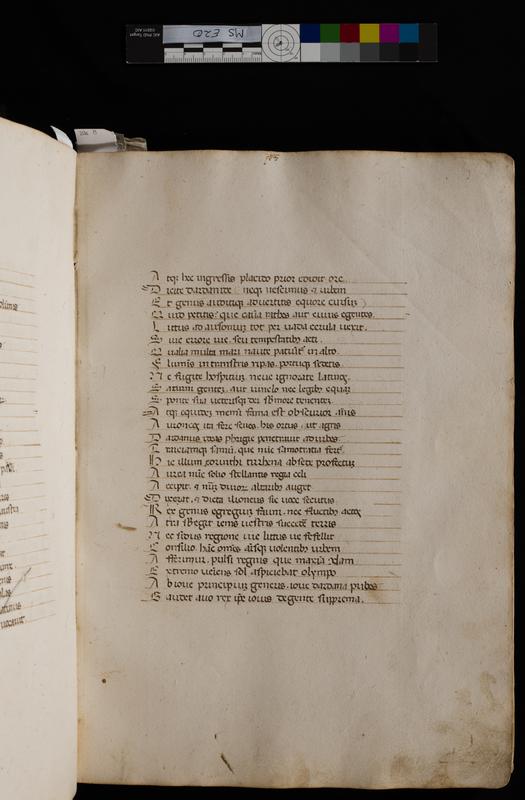 MS E20
Atq; hec ingressis placido prior edidit ore
Dicite dardanide (neq; nescimus & urbem
Et genus auditiq; advertitis equore cursum)
Quid petitis? que causa rates aut cuius egentes
Litus ad ausonium tot per vada cerula vexit.
Sive errore vie, seu tempestatibꝰ acti
Qualia multa mari naute patiunt᷑ in alto
Fluminis intrastis ripas, portuq; sedetis
Ne fugite hospitium neve ignorate latinos
Saturni gentem aut vinclo nec legibus equam
Sponte sua veterisq; dei se more tenentem
Atq; equidem memini fama est obscurior annis
Auruncos ita ferre senes, his ortus ut agris
Dardanus ideas phrigie penetravit ad urbes
Treiciamq; samum, que nunc samotratia fert᷑
Hic illum corinthi tirrhena ab sede profectum
Aurea nunc solio stellantis regia celi
Accipit, & num̄ divorum altaribus auget
Dixerat, & dicta ilioneus sic voce secutus
Rex genus egregium fauni, nec fluctibꝰ actos
Atra subegit iems vestris succedere terris
Nec sidus regione vie litus ve fefellit
Consilio hanc omnes animisq; volentibꝰ urbem
Afferimur, pulsi regnis que maxima quondam
Extremo veniens sol aspiciebat olympo
Ab iove principium generis, iove dardana pubes
Gaudet avo rex ipse iovis de gente suprema.